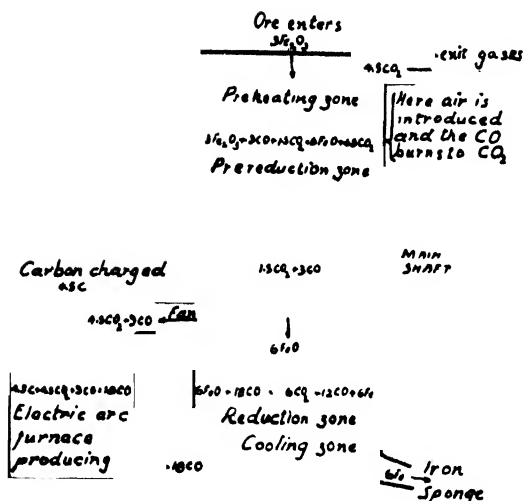 Ore enters
3Fe₂O₃
4.5CO₂ — exit gases
Preheating zone
Here air is
introduced
and the CO
burns to CO₂
3Fe₂O₃+3CO+1.5CO₂=6FeO+4.5CO₂
Prereduction zone
MAIN
SHAFT
Carbon charged
4.5C
1.5CO₂+3CO
4.5CO₂+9CO
Fan
6FeO
4.5C+4.5CO₂+9CO=18CO
Electric arc
furnace
producing
18CO
6FeO+18CO = 6CO₂+12CO+6Fe
Reduction zone
Cooling zone
6Fe → Iron
Sponge